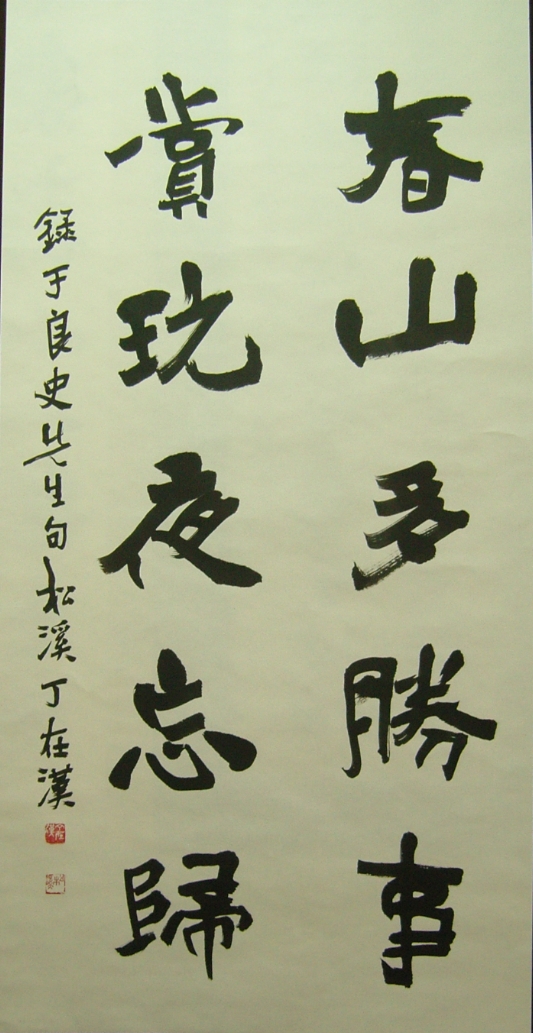 春山多勝事
賞玩夜忘歸
錄于良史先生句 松溪 丁在漢